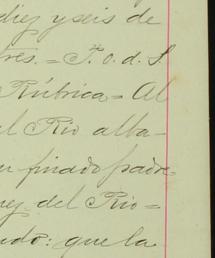 diez y seis de
tres. = T. o. d. S.
Rúbrica = Al
el Rio alba-
finado padre
ez del Rio =
ndo: que la